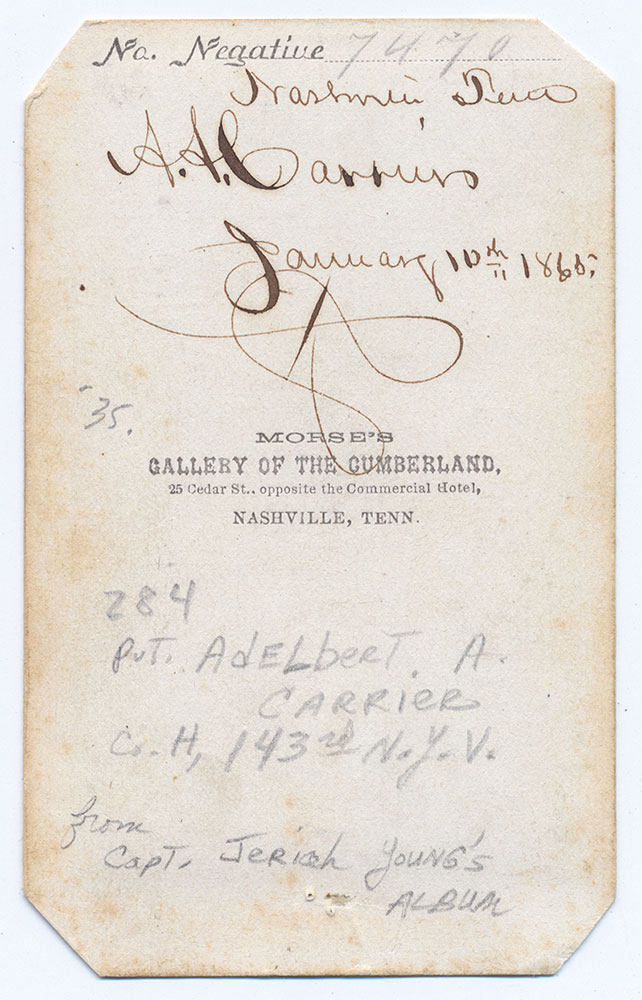 No. Negative 7470
Nashville Tenn
A. A. Carrier
January 10th 1865.
35.
MORSE'S
GALLERY OF THE CUMBERLAND,
25 Cedar St., opposite the Commercial Hotel,
NASHVILLE, TENN.
284
Pvt. AdELbert. A.
CARRIER
Co. H, 143rd N.Y.V.
from
Capt. Jeriah Young's
ALBUM